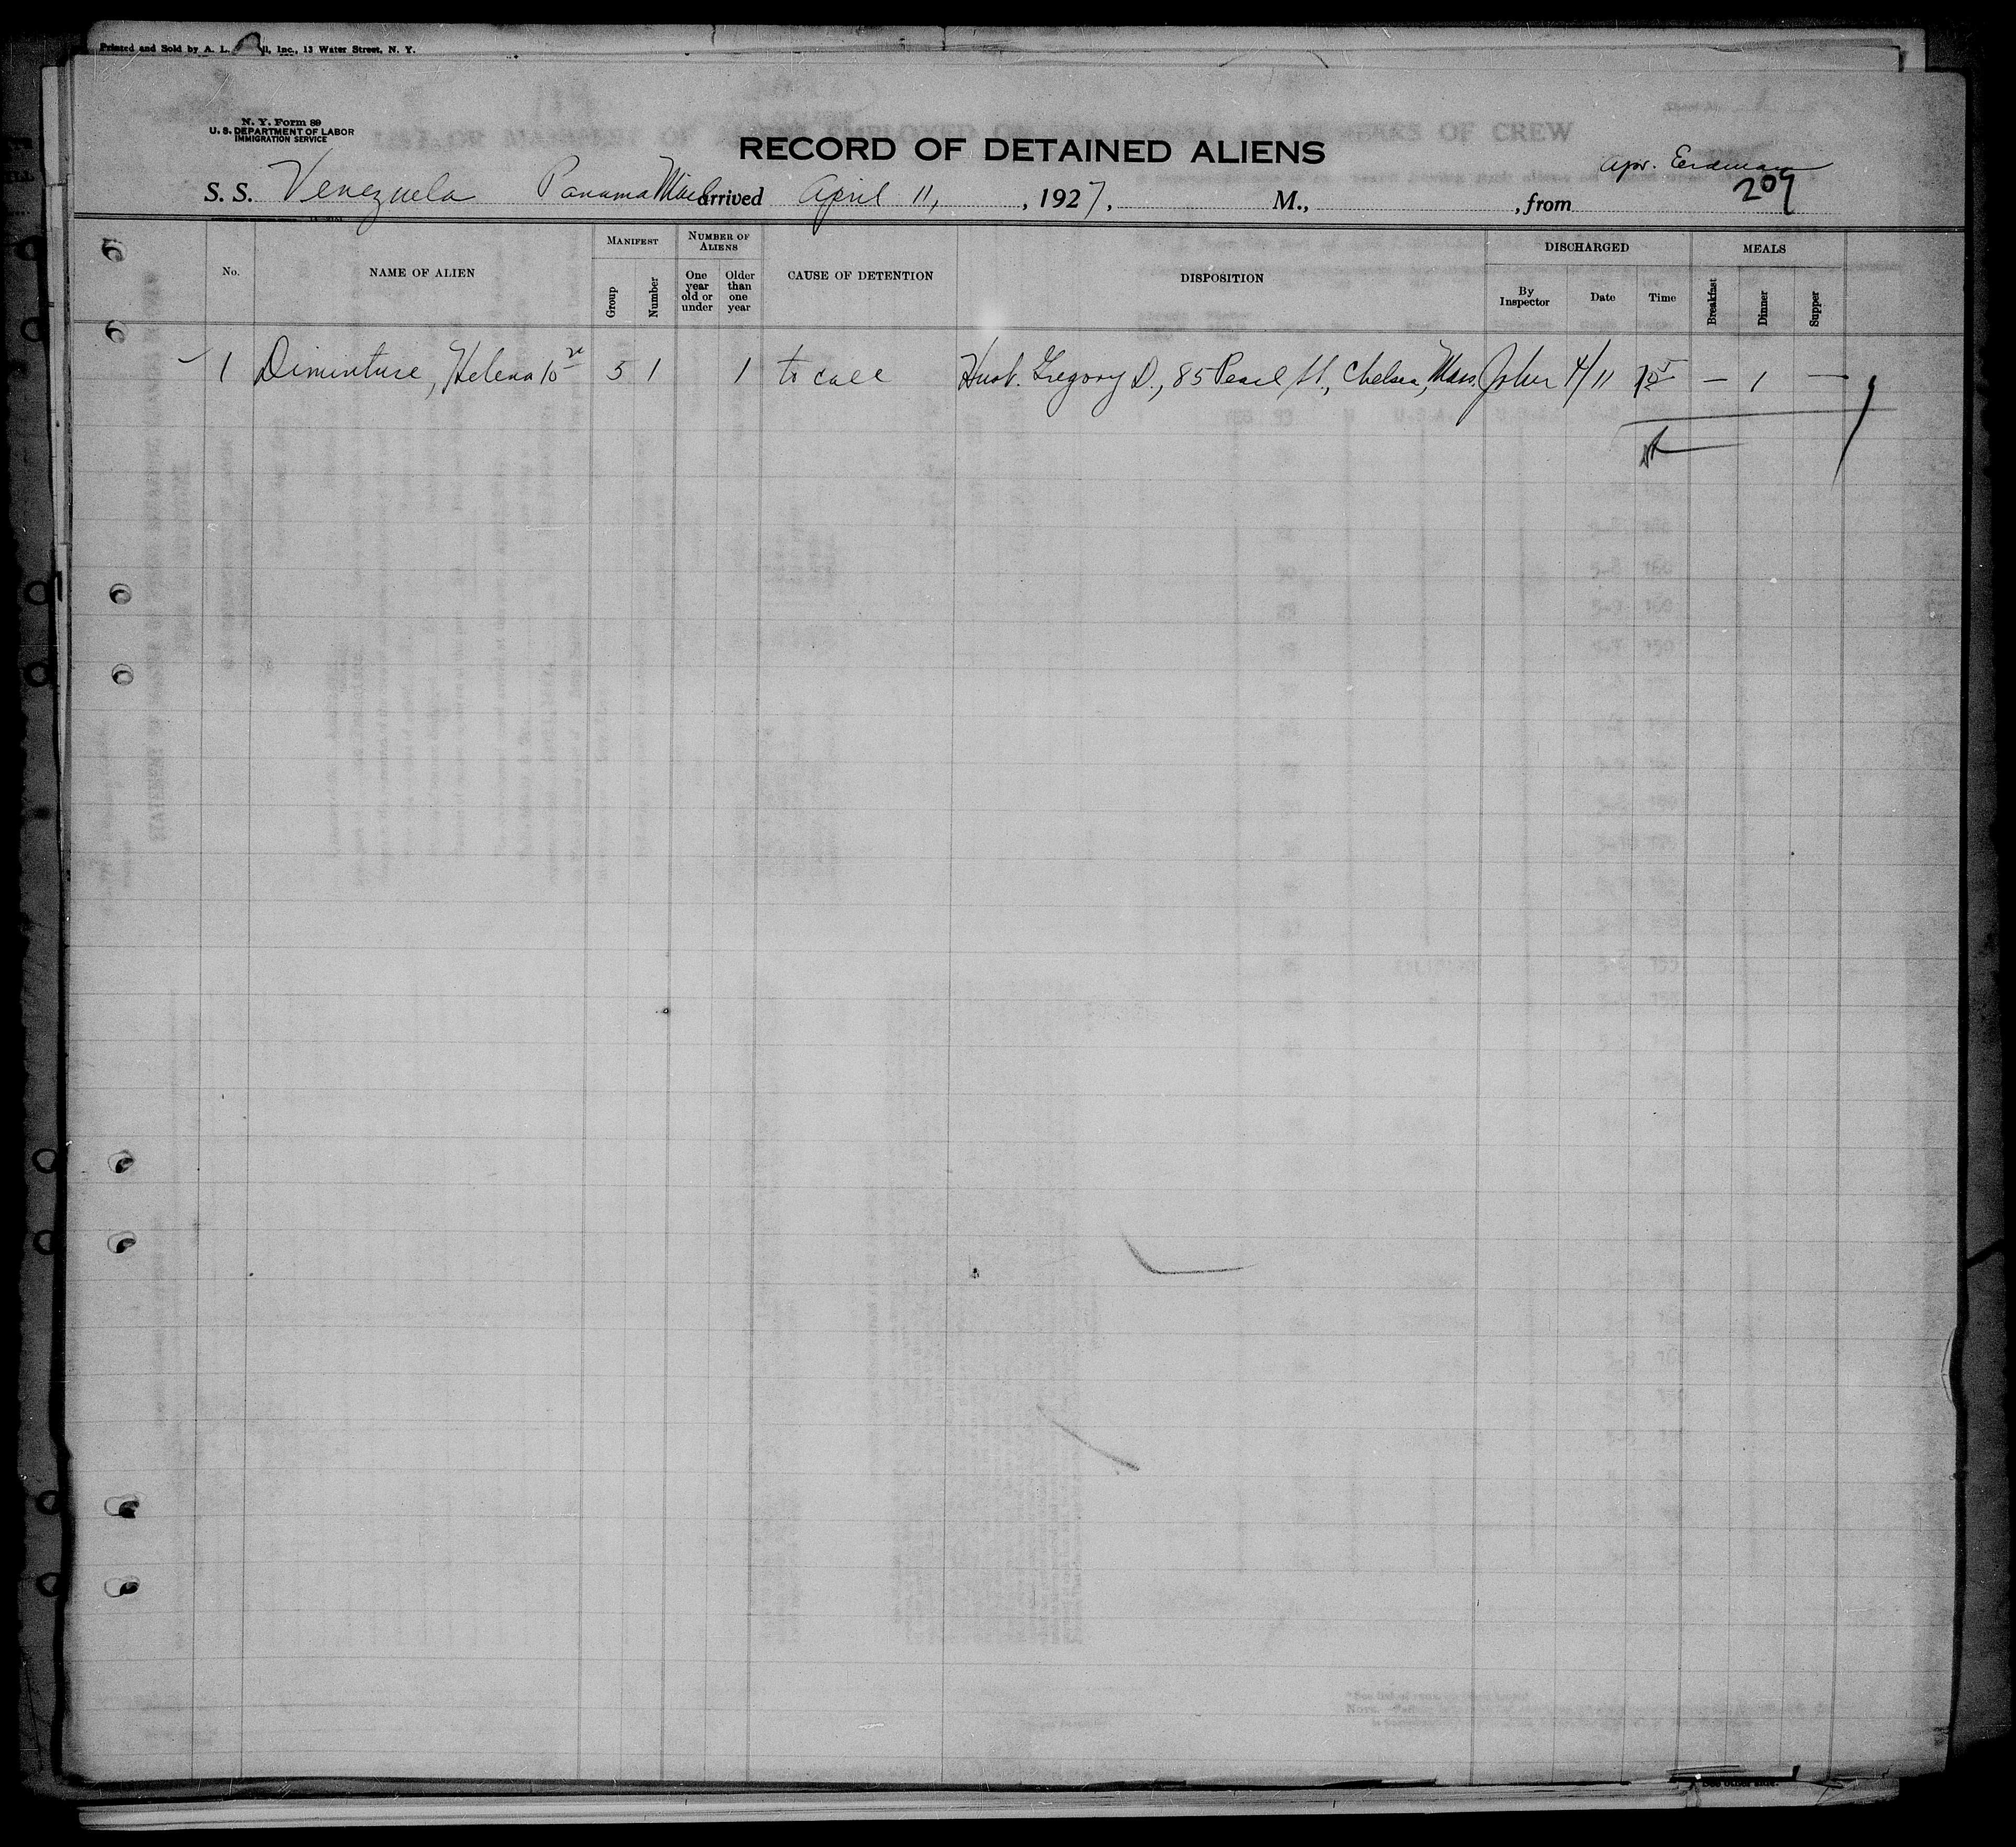 Printed and Sold by A. L. ll, Inc., 13 Water Street, N. Y.
N. Y. Form 89
U. S. DEPARTMENT OF LABOR
IMMIGRATION SERVICE
RECORD OF DETAINED ALIENS
S. S. Venezuela Panama Mail arrived April 11, , 1927, M., , from 209
MANIFEST NUMBER OF ALIENS DISCHARGED MEALS
No. NAME OF ALIEN Group Number One year old or under Older than one year CAUSE OF DETENTION DISPOSITION By Inspector Date Time Breakfast Dinner Supper
1 Diminture, Helena 10 5 1 1 to call Husb. Gregory D., 85 Pearl St., Chelsea, Mass. 4/11 — 1 —
See other side.